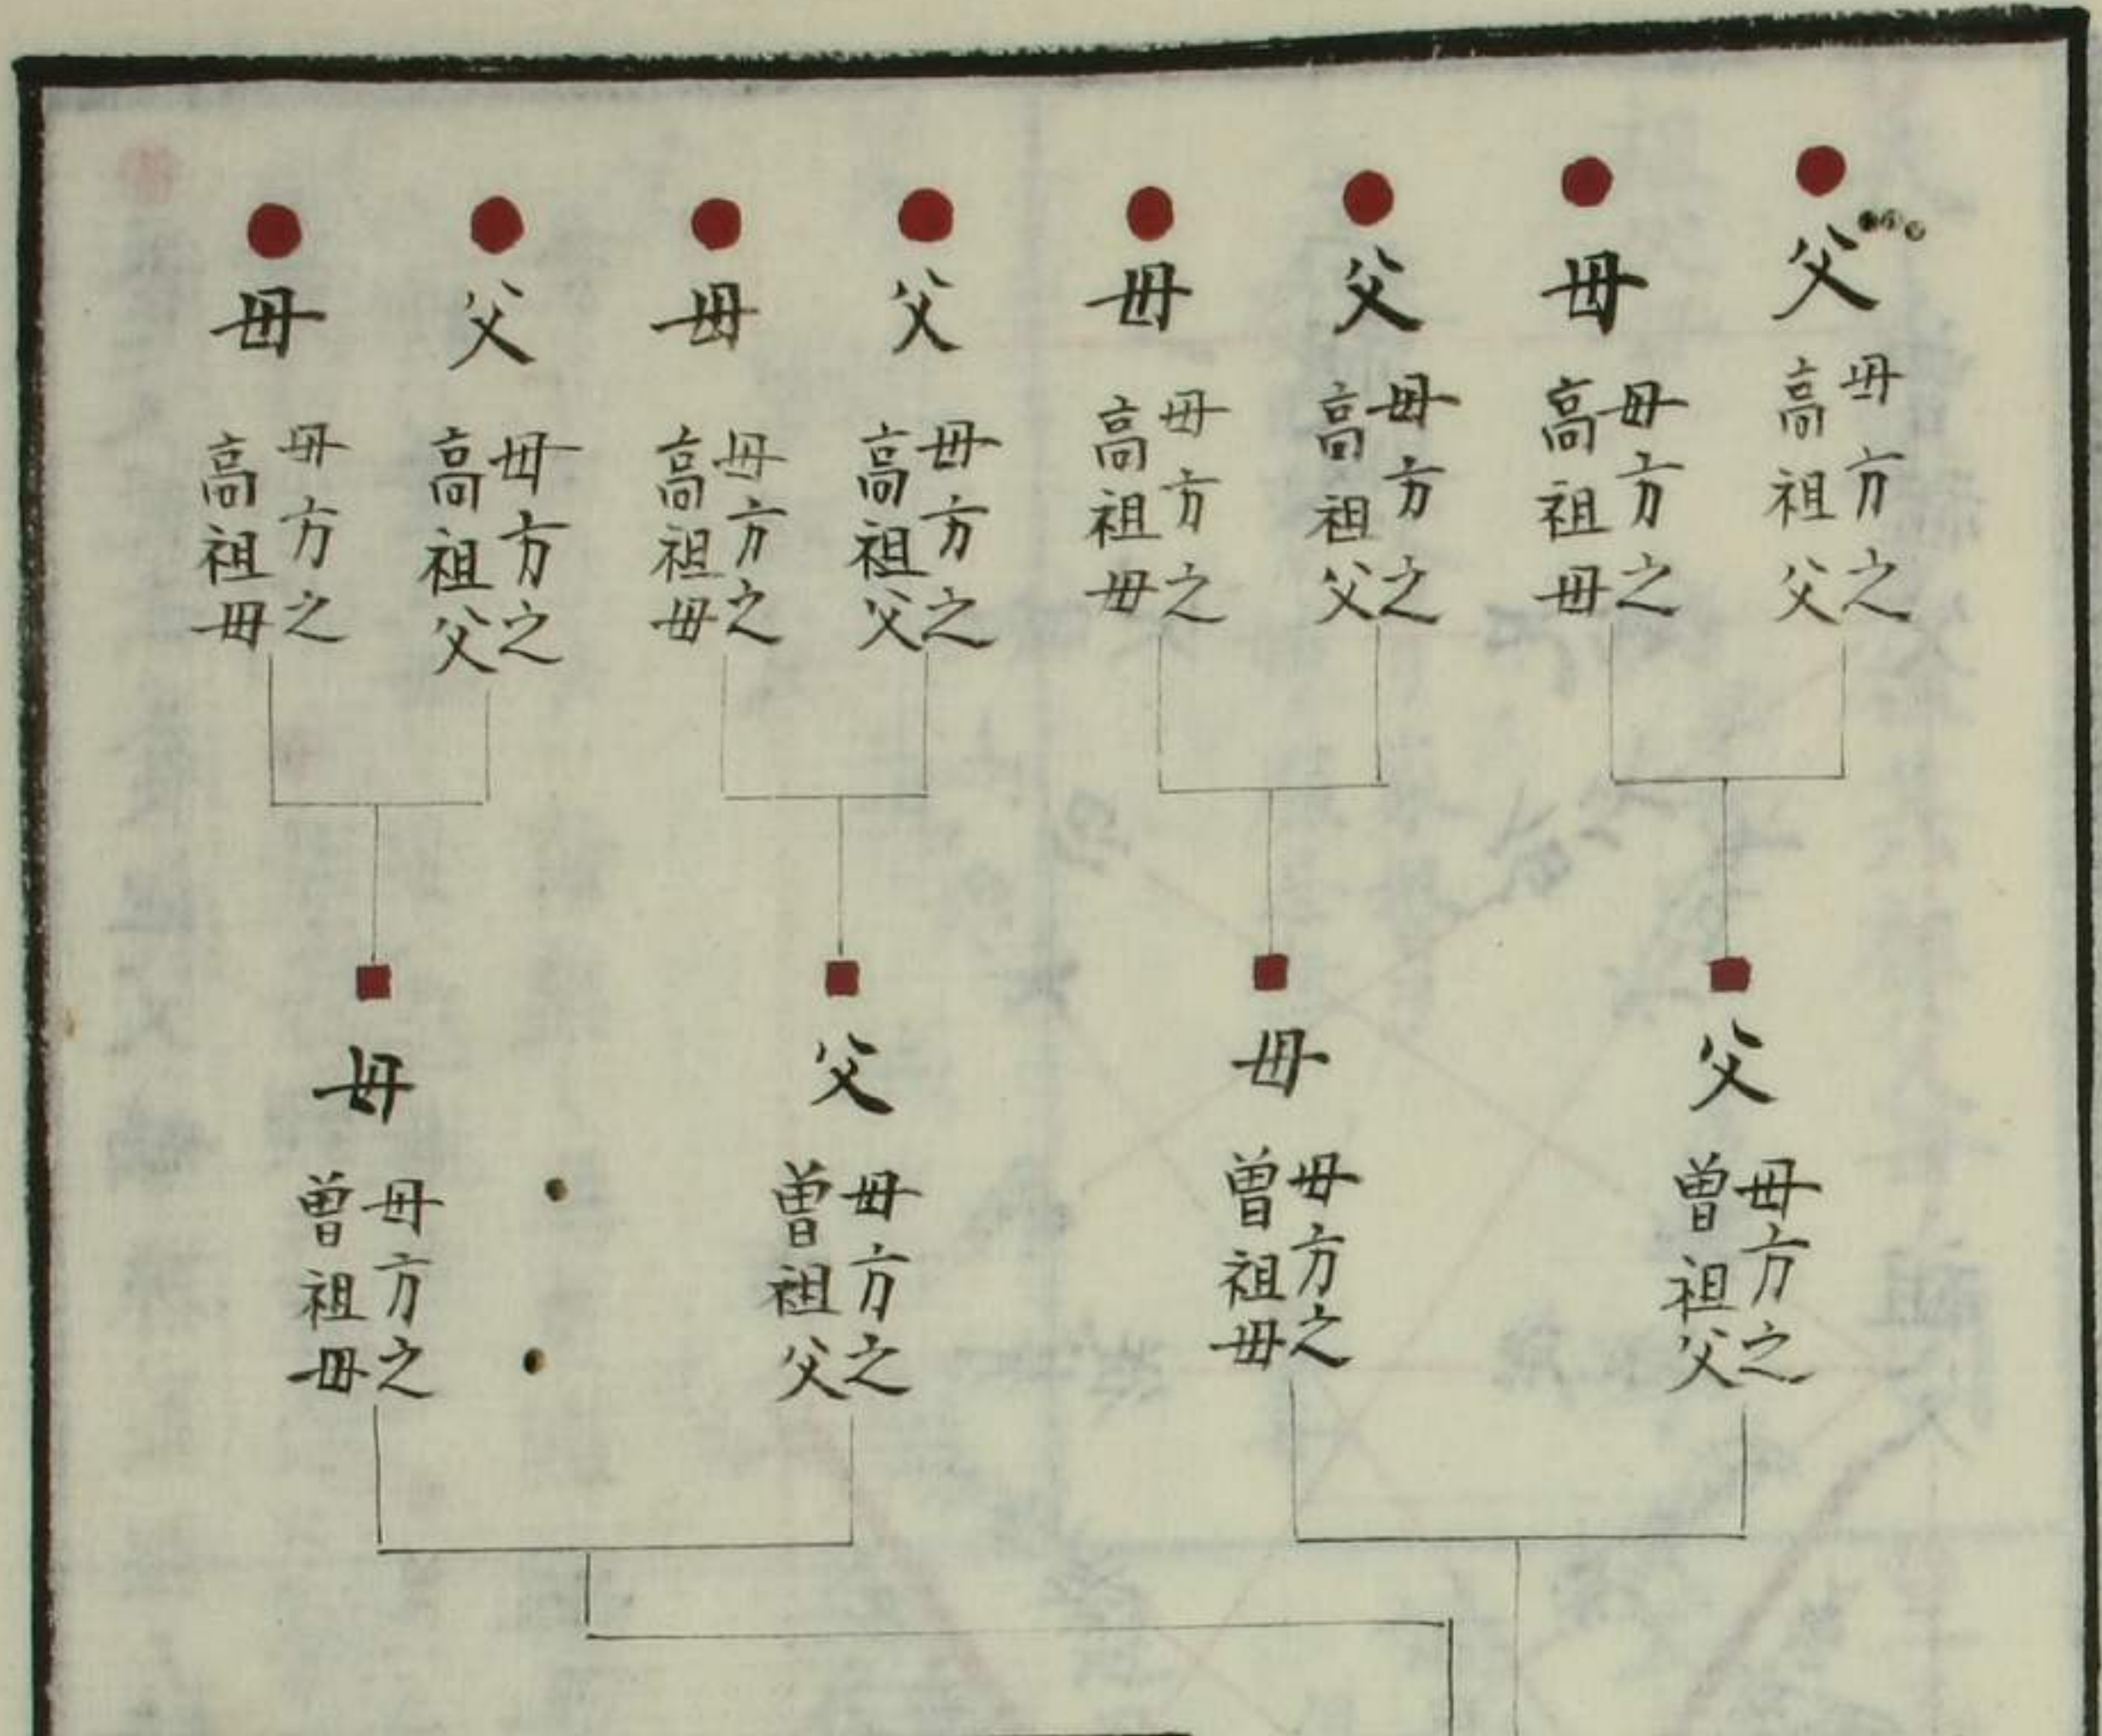 父
母方之
高祖父
母
母方之
高祖母
父
母方之
高祖父
母
母方之
高祖母
父
母方之
高祖父
母
母方之
高祖母
父
母方之
高祖父
母
母方之
高祖母
父
母方之
曽祖父
母
母方之
曽祖母
父
母方之
曽祖父
母
母方之
曽祖母